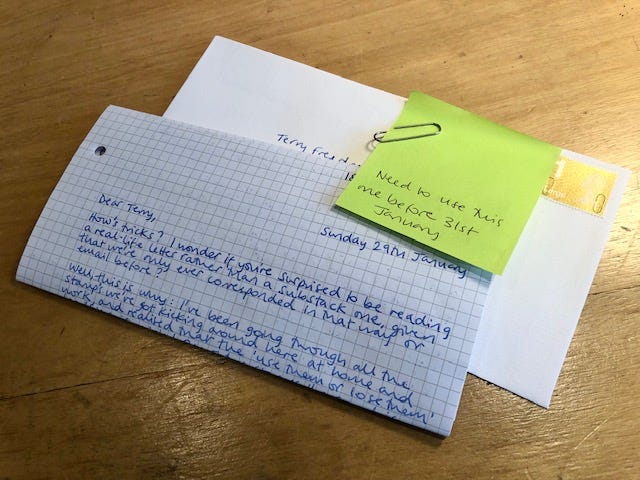 Terry
18
Need to use this
one before 31st
January
Sunday 29th January
Dear Terry,
How's tricks? I wonder if you're surprised to be reading
a real-life letter rather than a substack one, given
that we've only ever corresponded in that way or
email before?
Well, this is why: I've been going through all the
stamps we've got kicking around here at home and
work, and realised that the 'use them or lose them'